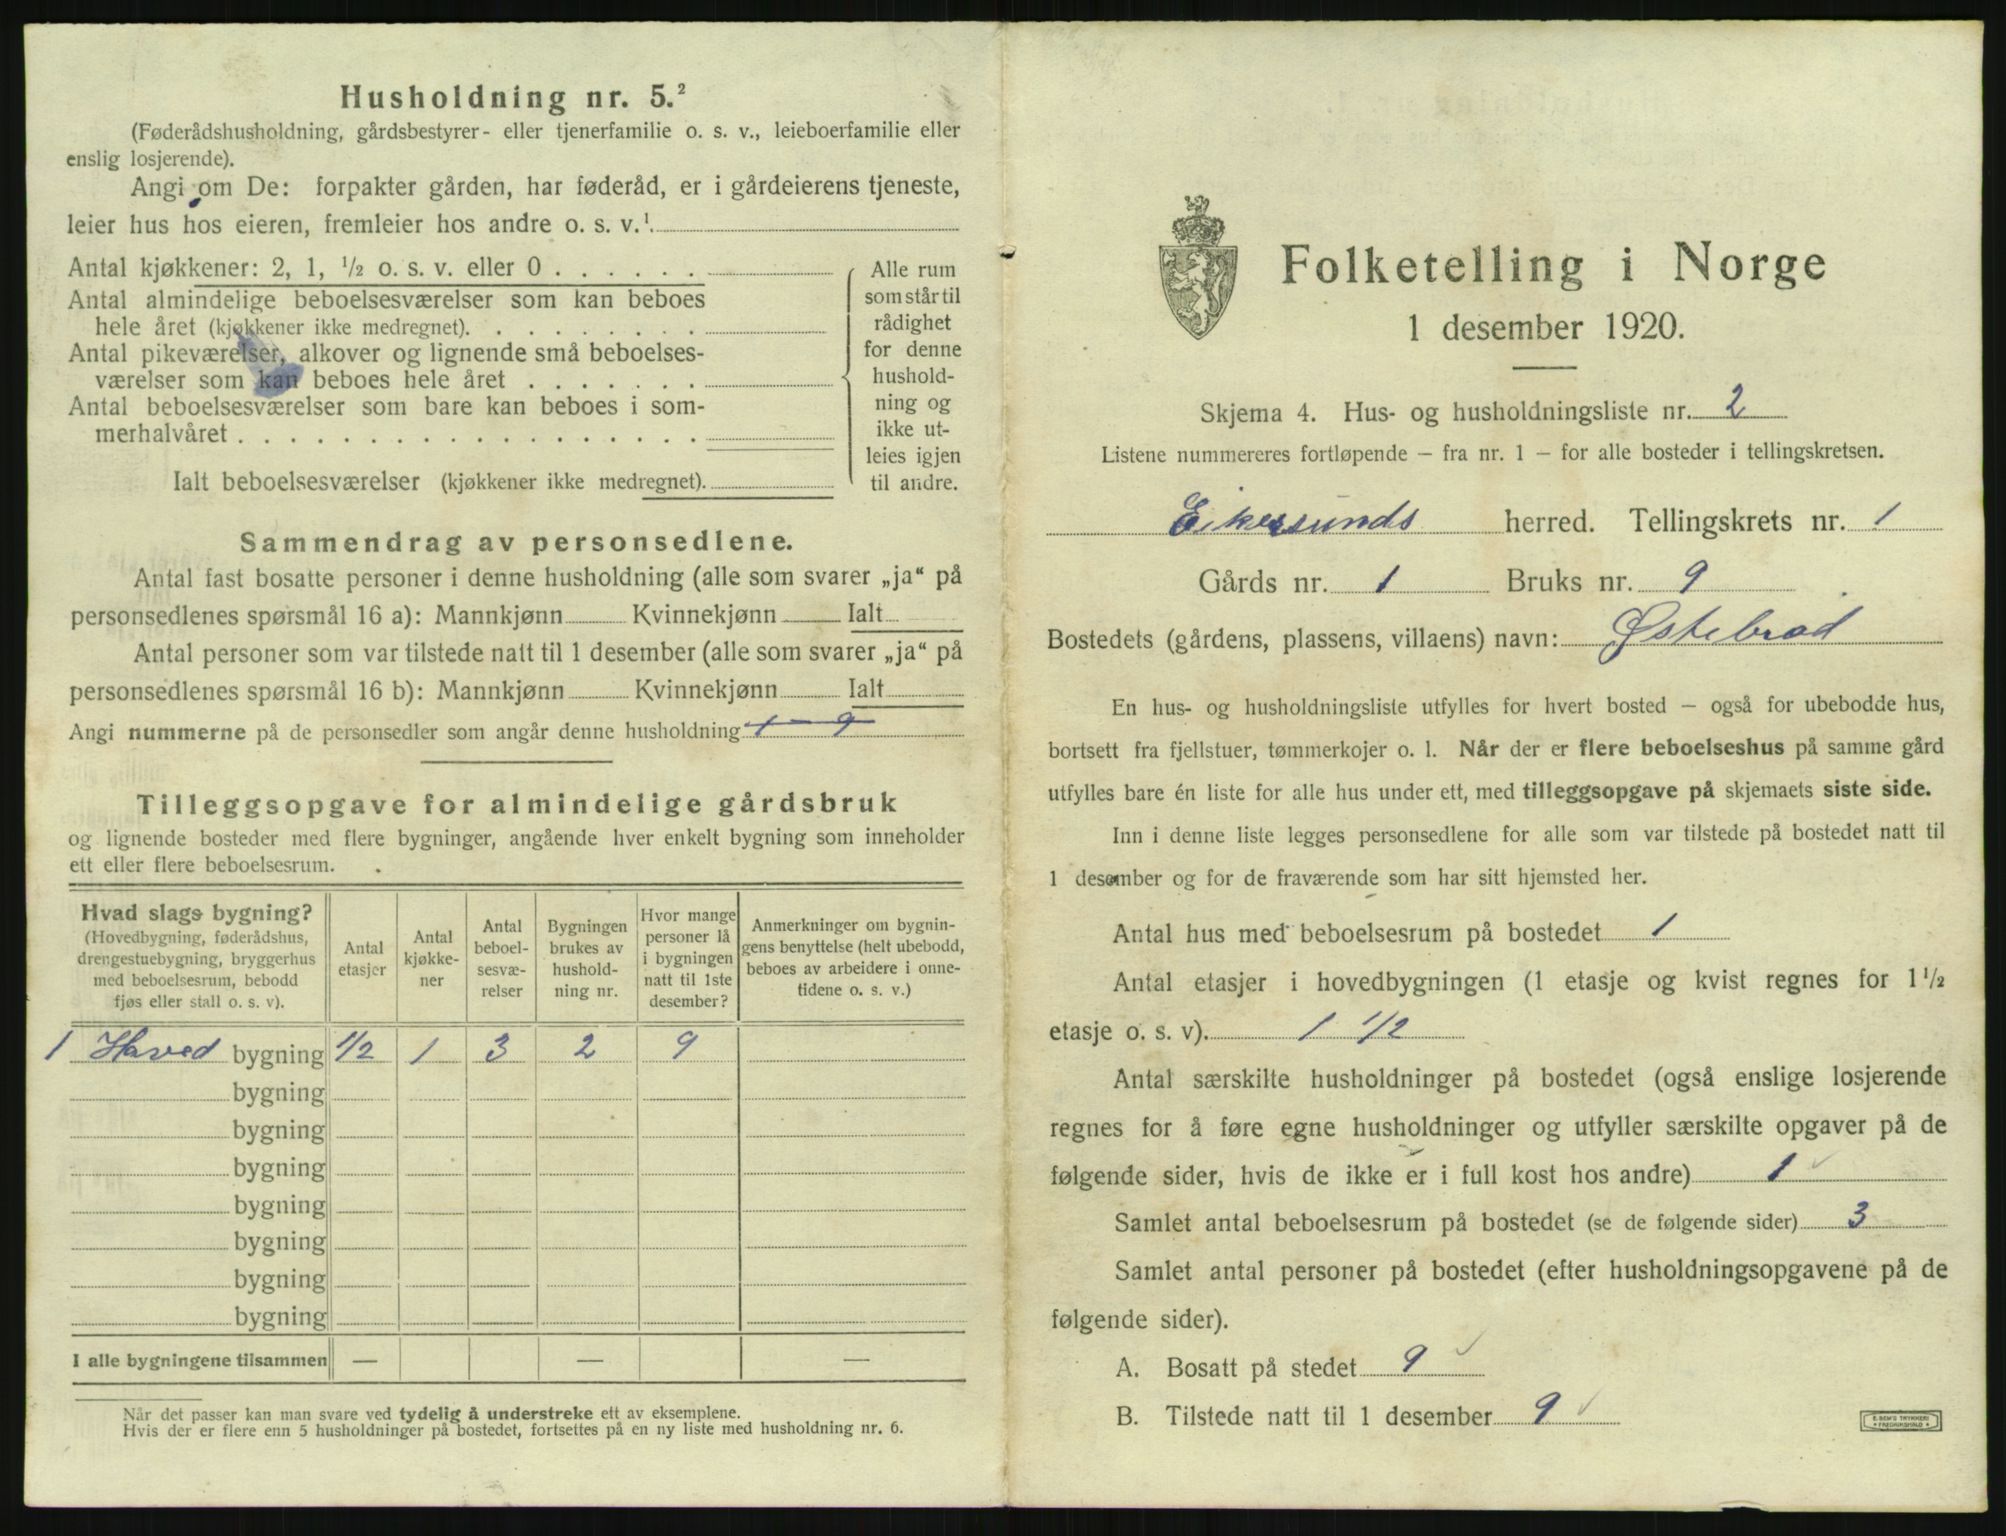 Husholdning nr. 5.²
(Føderådshusholdning, gårdsbestyrer- eller tjenerfamilie o. s. v., leieboerfamilie eller
enslig losjerende).
Angi om De: forpakter gården, har føderåd, er i gårdeierens tjeneste,
leier hus hos eieren, fremleier hos andre o. s. v.¹
Antal kjøkkener: 2, 1, ½ o. s. v. eller 0 . . . . . .
Antal almindelige beboelsesværelser som kan beboes
hele året (kjøkkener ikke medregnet). . . . . . . . .
Antal pikeværelser, alkover og lignende små beboelses-
værelser som kan beboes hele året . . . . . . .
Antal beboelsesværelser som bare kan beboes i som-
merhalvåret . . . . . . . . . . . . . . . . . .
Ialt beboelsesværelser (kjøkkener ikke medregnet).
Alle rum
som står til
rådighet
for denne
hushold-
ning og
ikke ut-
leies igjen
til andre.
Sammendrag av personsedlene.
Antal fast bosatte personer i denne husholdning (alle som svarer „ja“ på
personsedlenes spørsmål 16 a): Mannkjønn Kvinnekjønn Ialt
Antal personer som var tilstede natt til 1 desember (alle som svarer „ja“ på
personsedlenes spørsmål 16 b): Mannkjønn Kvinnekjønn Ialt
Angi nummerne på de personsedler som angår denne husholdning 1 – 9
Tilleggsopgave for almindelige gårdsbruk
og lignende bosteder med flere bygninger, angående hver enkelt bygning som inneholder
ett eller flere beboelsesrum.
Hvad slags bygning?
(Hovedbygning, føderådshus,
drengestuebygning, bryggerhus
med beboelsesrum, bebodd
fjøs eller stall o. s. v).
Antal
etasjer
Antal
kjøkke-
ner
Antal
beboel-
sesvæ-
relser
Bygningen
brukes av
hushold-
ning nr.
Hvor mange
personer lå
i bygningen
natt til 1ste
desember?
Anmerkninger om bygnin-
gens benyttelse (helt ubebodd,
beboes av arbeidere i onne-
tidene o. s. v.)
1 Hoved bygning ½ 1 3 2 9
bygning
bygning
bygning
bygning
bygning
bygning
bygning
I alle bygningene tilsammen — — —
Når det passer kan man svare ved tydelig å understreke ett av eksemplene.
Hvis der er flere enn 5 husholdninger på bostedet, fortsettes på en ny liste med husholdning nr. 6.
Folketelling i Norge
1 desember 1920.
Skjema 4. Hus- og husholdningsliste nr. 2
Listene nummereres fortløpende – fra nr. 1 – for alle bosteder i tellingskretsen.
Eikersunds herred. Tellingskrets nr. 1
Gårds nr. 1 Bruks nr. 9
Bostedets (gårdens, plassens, villaens) navn: Østebrød
En hus- og husholdningsliste utfylles for hvert bosted – også for ubebodde hus,
bortsett fra fjellstuer, tømmerkojer o. l. Når der er flere beboelseshus på samme gård
utfylles bare én liste for alle hus under ett, med tilleggsopgave på skjemaets siste side.
Inn i denne liste legges personsedlene for alle som var tilstede på bostedet natt til
1 desember og for de fraværende som har sitt hjemsted her.
Antal hus med beboelsesrum på bostedet 1
Antal etasjer i hovedbygningen (1 etasje og kvist regnes for 1½
etasje o. s. v). 1 ½
Antal særskilte husholdninger på bostedet (også enslige losjerende
regnes for å føre egne husholdninger og utfyller særskilte opgaver på de
følgende sider, hvis de ikke er i full kost hos andre) 1 ✓
Samlet antal beboelsesrum på bostedet (se de følgende sider) 3
Samlet antal personer på bostedet (efter husholdningsopgavene på de
følgende sider).
A. Bosatt på stedet 9 ✓
B. Tilstede natt til 1 desember 9 ✓
E. SEM'S TRYKKERI
FREDRIKSHALD